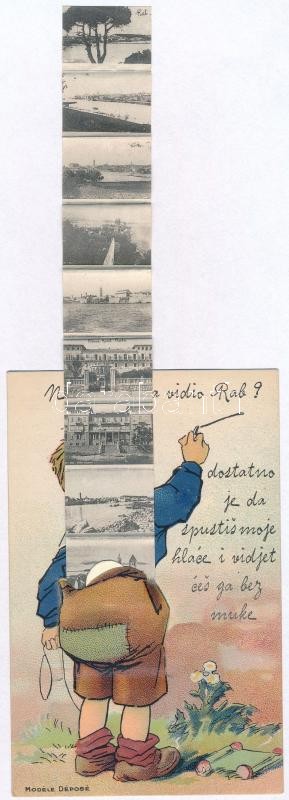 Rab
N a vidio Rab?
dostatno
je da
spustiš moje
hlače i vidjet
ćeš ga bez
muke
MODÈLE DÉPOSÉ